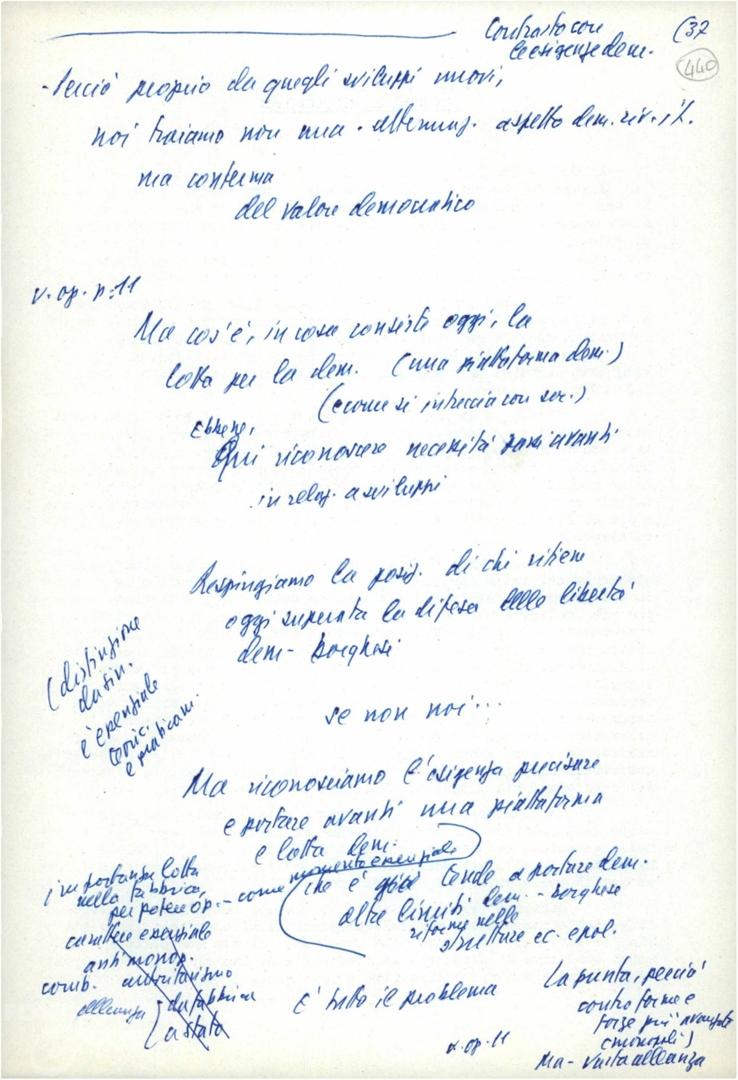 Contrasto con (37
le esigenze dem.
440
- Perciò proprio da quegli sviluppi nuovi,
noi traiamo non una - attenuaz. aspetto dem. riv. it.
ma conferma
del valore democratico
v. op. p. 11
Ma cos'è, in cosa consiste oggi, la
lotta per la dem. (una piattaforma dem.)
(e come si intreccia con soc.)
Ebbene,
Qui riconoscere necessità passi avanti
in relaz. a sviluppi
Respingiamo la posiz. di chi ritiene
oggi superata la difesa delle libertà
dem - borghesi
(distinzione
da sin.
è essenziale
teoric.
e praticam.
se non noi...
Ma riconosciamo l'esigenza precisare
e portare avanti una piattaforma
e lotta dem.
momento essenziale
che è già tende a portare dem.
oltre limiti dem. - borghese
riforme nelle
strutture ec. e pol.
importanza lotta
nella fabbrica,
per potere op. - come
carattere essenziale
antimonop.
comb. autoritarismo
alleanza da fabbrica
a stato
È tutto il problema
v. op. 11
La punta, perciò
contro forme e
forze più avanzate
(monopoli)
Ma - vasta alleanza